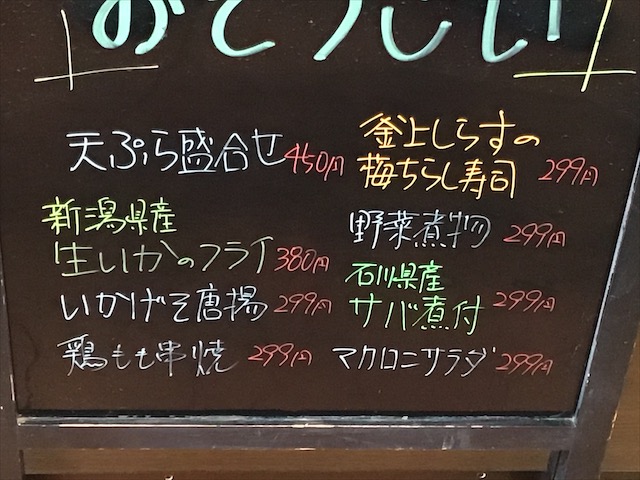 おそうじい
天ぷら盛合せ 450円
新潟県産
生いかのフライ 380円
いかげそ唐揚 299円
鶏もも串焼 299円
釜上しらすの
梅ちらし寿司 299円
野菜煮物 299円
石川県産
サバ煮付 299円
マカロニサラダ 299円